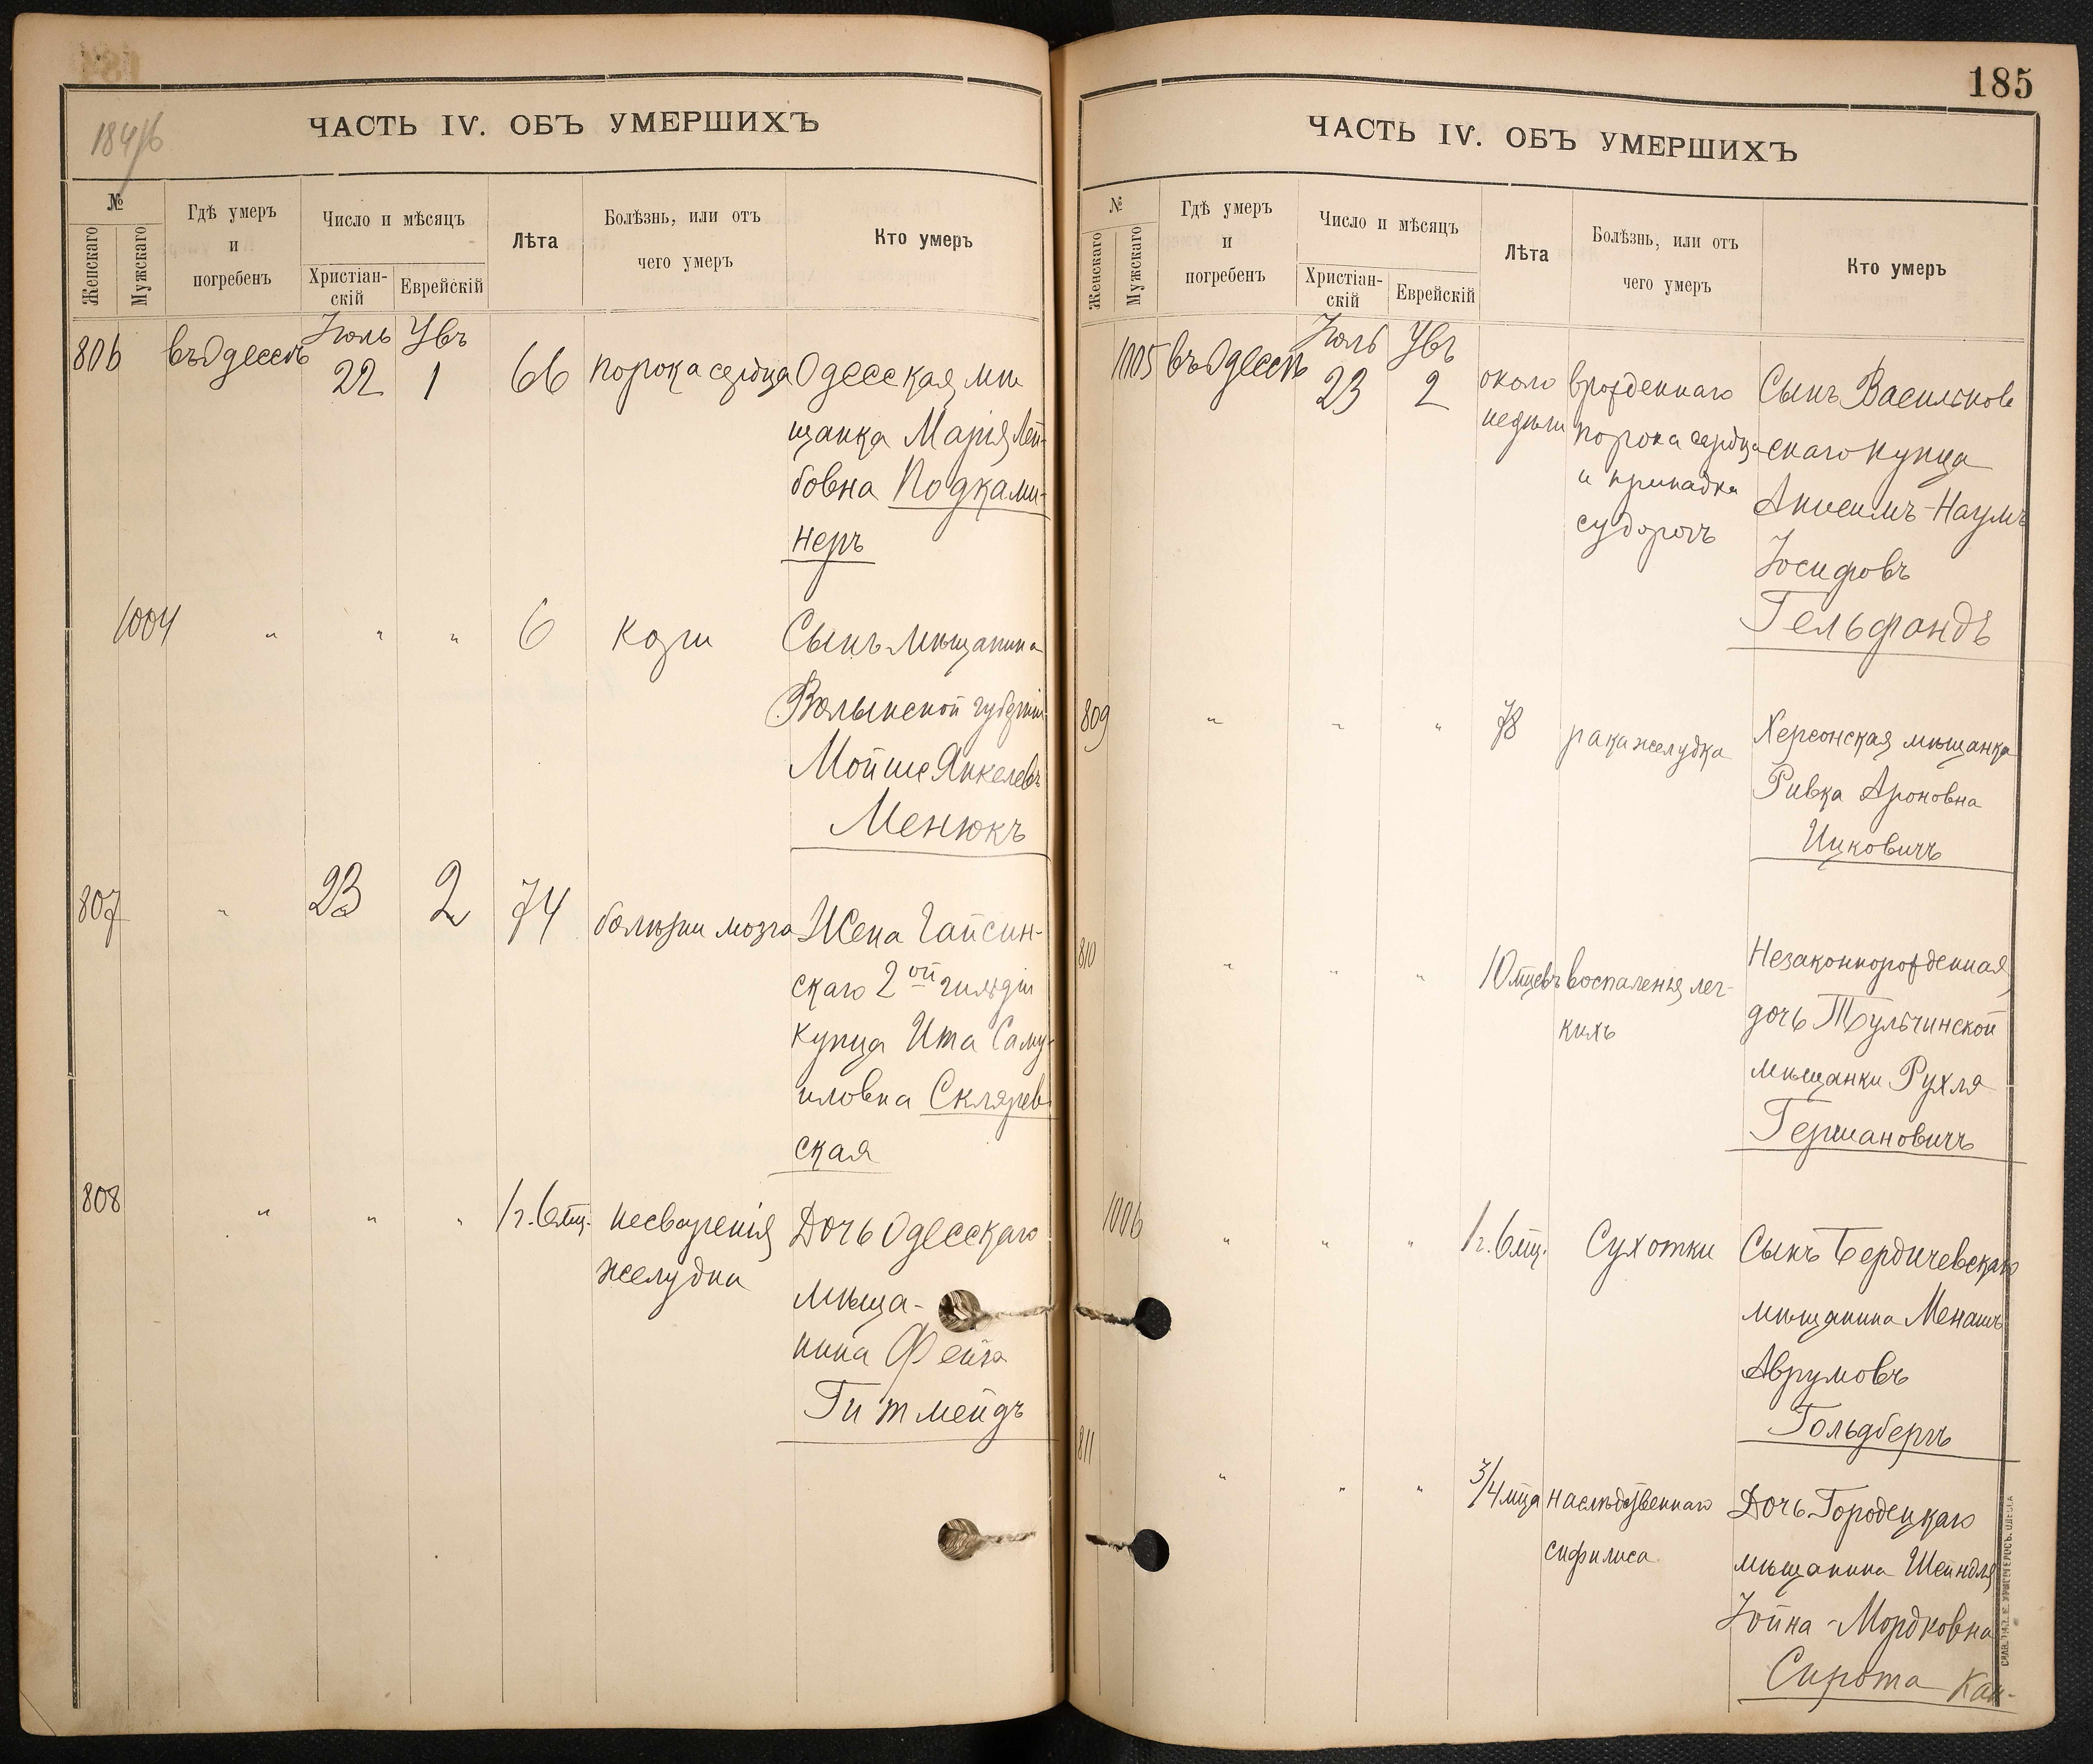 184/б
ЧАСТЬ IV. ОБЪ УМЕРШИХЪ
№
Женскаго
Мужскаго
Гдѣ умеръ
и
погребенъ
Число и мѣсяцъ
Христіан-
скій
Еврейскій
Лѣта
Болѣзнь, или отъ
чего умеръ
Кто умеръ
806 въ Одессѣ Іюль 22 Увъ 1 66 порока сердца Одесская мѣ
щанка Марія Лей-
бовна Подками-
неръ
1004 " " " 6 кори Сынъ мѣщанина
Волынской губерніи
Мойше Янкелевъ
Менюкъ
807 " 23 2 74 болѣзни мозга Жена Гайсин-
скаго 2ой гильдіи
купца Ита Саму-
иловна Скляров-
ская
808 " " " 1 г. 6 мц. несваренія Дочь Одесскаго
желудка
мѣща-
нина Фейга
Гитмейдъ
185
ЧАСТЬ IV. ОБЪ УМЕРШИХЪ
№
Женскаго
Мужскаго
Гдѣ умеръ
и
погребенъ
Число и мѣсяцъ
Христіан-
скій
Еврейскій
Лѣта
Болѣзнь, или отъ
чего умеръ
Кто умеръ
1005 въ Одессѣ Іюль 23 Увъ 2 около врожденнаго Сынъ Васильков
недѣли порока сердца скаго купца
и припадка Анисимъ-Наумъ
судорогъ Іосифовъ
Гельфандъ
809 " " " 78 рака желудка Херсонская мѣщанка
Ривка Ароновна
Ицковичъ
810 " " " 10 мцевъ воспаленія лег- Незаконнорожденная
кихъ дочь Тульчинской
мѣщанки Рухля
Германовичъ
1006 " " " 1 г. 6 мц. Сухотки Сынъ Бердичевскаго
мѣщанина Менашъ
Аврумовъ
Гольдбергъ
811 " " " 3/4 мца наслѣдственнаго Дочь Городецкаго
сифилиса мѣщанина Шейндля
Іойна-Мордковна
Сирота Кан-